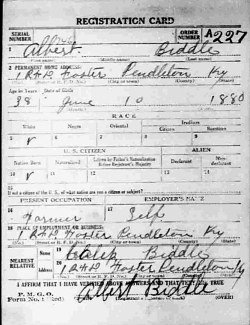 REGISTRATION CARD
SERIAL NUMBER
ORDER NUMBER A227
Albert Biddle
(First name) (Middle name) (Last name)
2 PERMANENT HOME ADDRESS
1 R#2 Foster Pendleton Ky
Age in Years Date of Birth
38 June 10 1880
RACE
White Negro Oriental Indian
Citizen Noncitizen
U. S. CITIZEN ALIEN
Native Born Naturalized Citizen by Father's Naturalization Before Registrant's Majority Declarant Non-declarant
If not a citizen of the U. S., of what nation are you a citizen or subject?
PRESENT OCCUPATION EMPLOYER'S NAME
Farmer Self
PLACE OF EMPLOYMENT OR BUSINESS
Foster Pendleton Ky
NEAREST RELATIVE
Name Biddle
Address Foster Pendleton Ky
I AFFIRM THAT I HAVE VERIFIED ABOVE ANSWERS AND THAT THEY ARE TRUE
P. M. G. O.
Form No. 1 (Red)
Albert Biddle